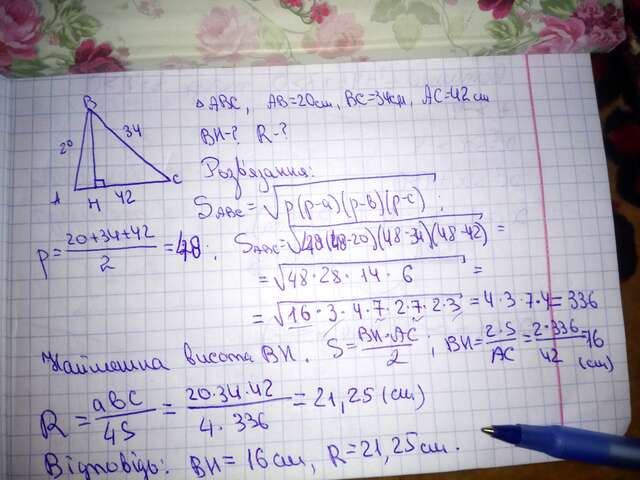 △ABC, AB=20см, BC=34см, AC=42см
BH-? R-?
B
20
34
A
H
42
C
Розв'язання:
S_ABC=√p(p-a)(p-b)(p-c);
p=(20+34+42)/2=48. S_ABC=√48(48-20)(48-34)(48-42) =
=√48·28·14·6 =
=√16·3·4·7·2·7·2·3 = 4·3·7·4=336
Найменша висота BH. S=BH·AC/2; BH=2·S/AC=2·336/42=16 (см)
R=abc/4S=20·34·42/4·336=21,25(см)
Відповідь: BH=16см, R=21,25см.